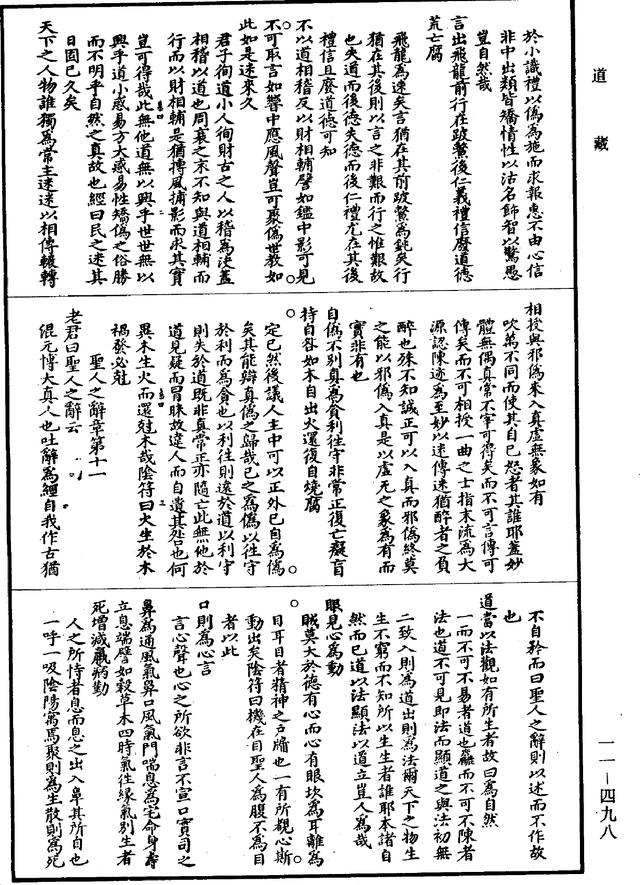 道藏
於小識禮以偽為施而求報惠不由心信
非中出類皆矯情性以沽名飾智以驚愚
豈自然哉
言出飛龍前行在跛鱉後仁義禮信廢道德
荒亡腐
飛龍為速矣言猶在其前跛鱉為鈍矣行
猶在其後則以言之非艱而行之惟艱故
也失道而後德失德而後仁禮尤在其後
禮信且廢道德可知
不以道相稽反以財相輔譬如鑑中影可見
不可取言如響中應風聲豈可聚偽世教如
此如是迷來久
君子徇道小人徇財古之人以稽為決蓋
相稽以道也周衰之末不知與道相輔而
行而以財相輔是猶摶風捕影而求其實
豈可得哉此無他道無以興乎世世無以
興乎道小惑易方大惑易性矯偽之俗勝
而不明乎自然之真故也經曰民之迷其
日固已久矣
天下之人物誰獨為常主迷迷以相傳輾轉
相授與邪偽來入真虛無象如有
吹萬不同而使其自已怒者其誰耶蓋妙
體無偶真常不宰可得矣而不可言傳可
傳矣而不可相授一曲之士指末流為大
源認陳迹為至妙以迷傳迷猶醉者之負
醉也殊不知誠正可以入真而邪偽終莫
之能以邪偽入真是以虛无之象為有而
實非有也
自偽不別真為貪利往守非常正復亡癡盲
持自咎如木自出火還復自燒腐
定已然後議人主中可以正外已自為偽
矣其能辯真偽之歸哉已之為偽以往守
於利而為貪也以利往則遠於道以利守
則失於道既非真常正亦隨亡此無他於
道見疑而冒昧故違人而自遺其咎也何
異木生火而還尅木哉陰符曰火生於木
禍發必尅
聖人之辭章第十一
老君曰聖人之辭云
混元博大真人也吐辭為經自我作古猶
不自矜而曰聖人之辭則以述而不作故
也
道當以法觀如有所生者故曰為自然
一而不可不易者道也麤而不可不陳者
法也道不可見即法而顯道之與法初無
二致入則為道出則為法爾天下之物生
生不窮而不知所以生生者誰耶本諸自
然而已道以法顯法以道立豈人為哉
眼見心為動
賊莫大於德有心而心有眼坎為耳離為
目耳目者精神之戶牖也一有所觀心斯
動出矣陰符曰機在目聖人為腹不為目
者以此
口則為心言
言心聲也心之所欲非言不宣口實司之
鼻為通風氣鼻口風氣門喘息為宅命身壽
立息端譬如穀草木四時氣往緣氣別生者
死增減羸病勤
人之所恃者息而息之出入鼻其所自也
一呼一吸陰陽寓焉聚則為生散則為死
一一—四九八